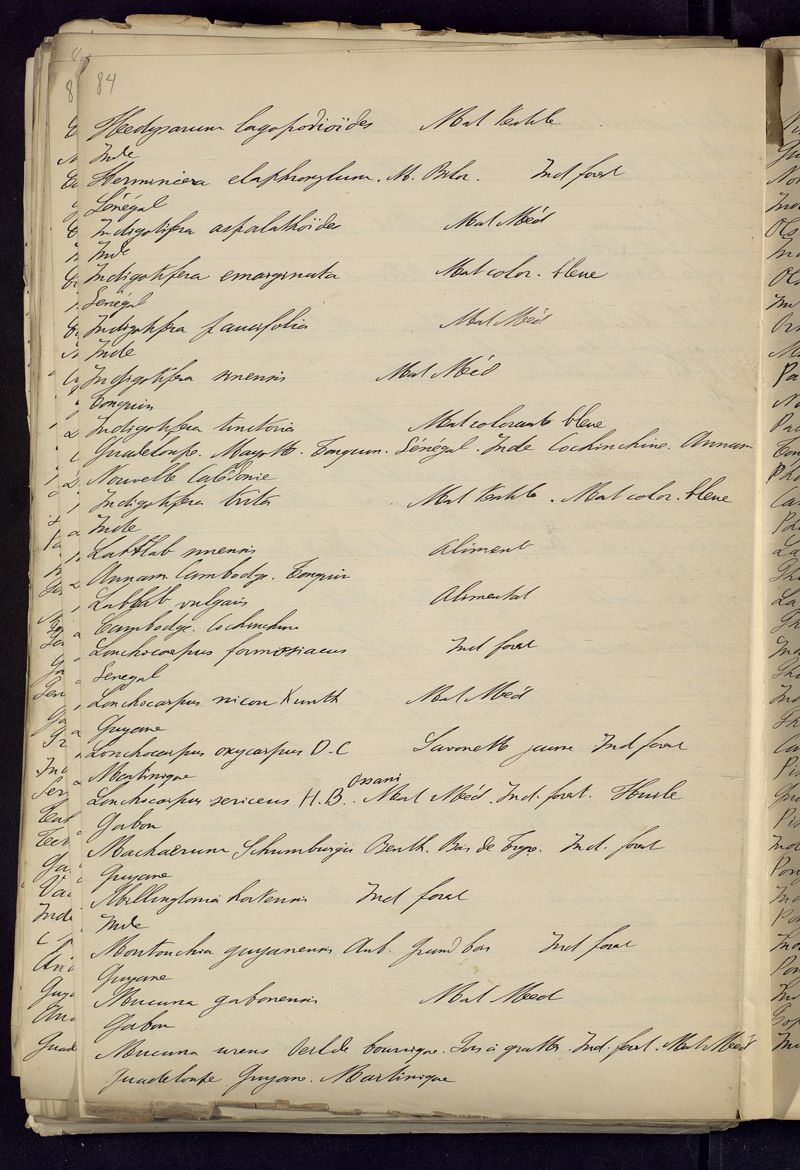 84
Hedysarum lagopodioïdes Mat textile
Inde
Herminiera elaphroxylum. M. Ind forest
Sénégal
Indigotifera aspalathoïdes Mat Méd
Inde
Indigotifera emarginata Mat color. bleue
Sénégal
Indigotifera Mat Méd
Inde
Indigotifera sinensis Mat Méd
Tonquin
Indigotifera tinctoria Mat colorante bleue
Guadeloupe. Mayotte. Tonquin. Sénégal. Inde Cochinchine. Annam
Nouvelle Calédonie
Indigotifera trita Mat textile. Mat color. bleue
Inde
Lablab sinensis Aliment
Annam Cambodge. Tonquin
Lablab vulgais Alimental
Cambodge. Cochinchine
Lonchocarpus formosiaeus Ind forest
Senegal
Lonchocarpus nicou Kunth Mat Med
Guyane
Lonchocarpus oxycarpus D.C Savonette jaune Ind forest
Martinique
Ossani
Lonchocarpus sericeus H.B. Mat Méd. Ind. forest. Huile
Gabon
Machaerium Schumburgii Benth. Bois de tigre. Ind. forest
Guyane
Millingtonia hortensis Ind forest
Inde
Moutouchia guyanensis Aub. grand bois Ind forest
Guyane
Mucuna gabonensis Mat Med
Gabon
Mucuna urens Oeil de bourrique. Pois à gratter. Ind. forest. Mat Méd
Guadeloupe Guyane. Martinique